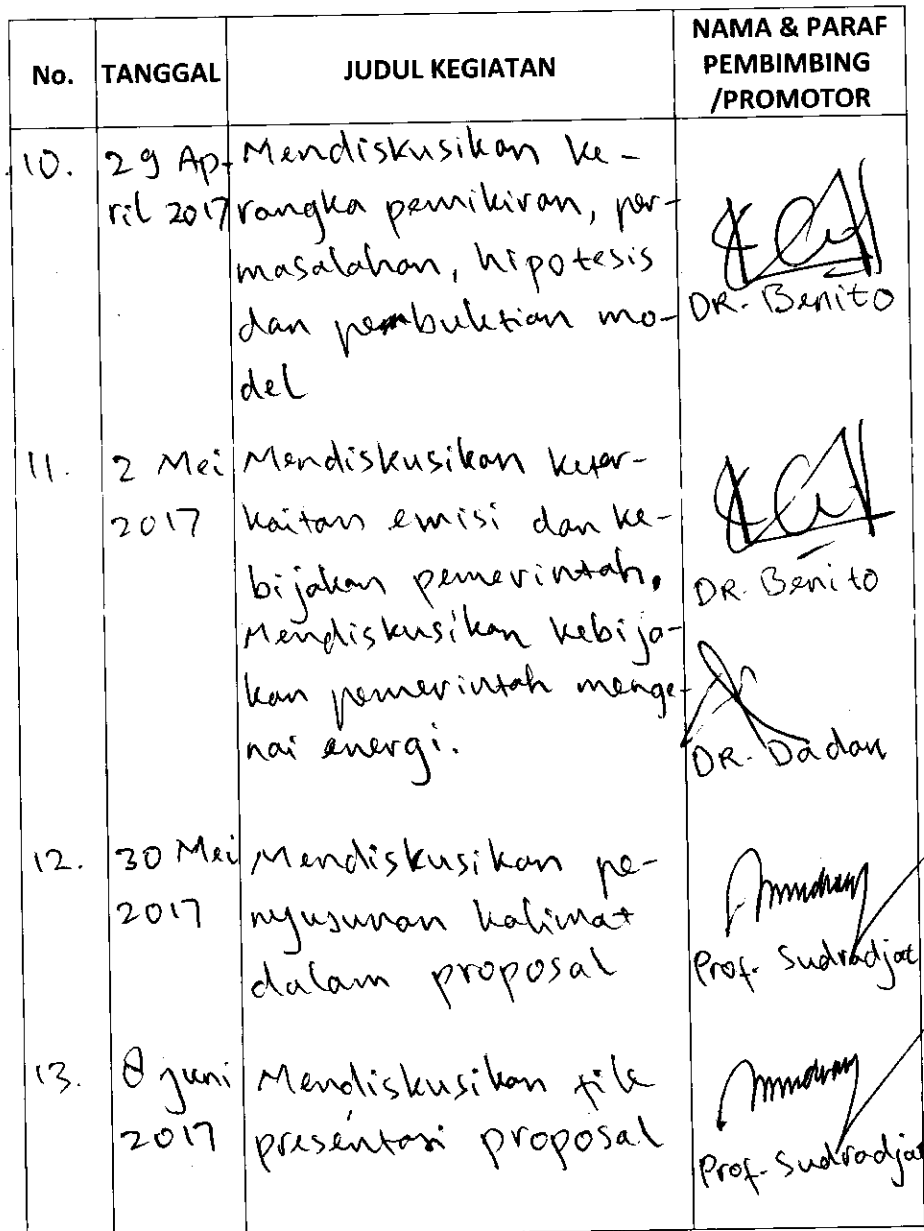 No. TANGGAL JUDUL KEGIATAN NAMA & PARAF PEMBIMBING /PROMOTOR
10. 29 Ap- Mendiskusikan ke-
ril 2017 rangka pemikiran, per-
masalahan, hipotesis
dan pembuktian mo- DR. Benito
del
11. 2 Mei Mendiskusikan keter-
2017 kaitan emisi dan ke-
bijakan pemerintah. DR. Benito
Mendiskusikan kebija-
kan pemerintah menge-
nai energi. DR. Dadan
12. 30 Mei Mendiskusikan pe-
2017 nyusunan kalimat
dalam proposal Prof. Sudradjat
13. 8 juni Mendiskusikan file
2017 presentasi proposal Prof. Sudradjat